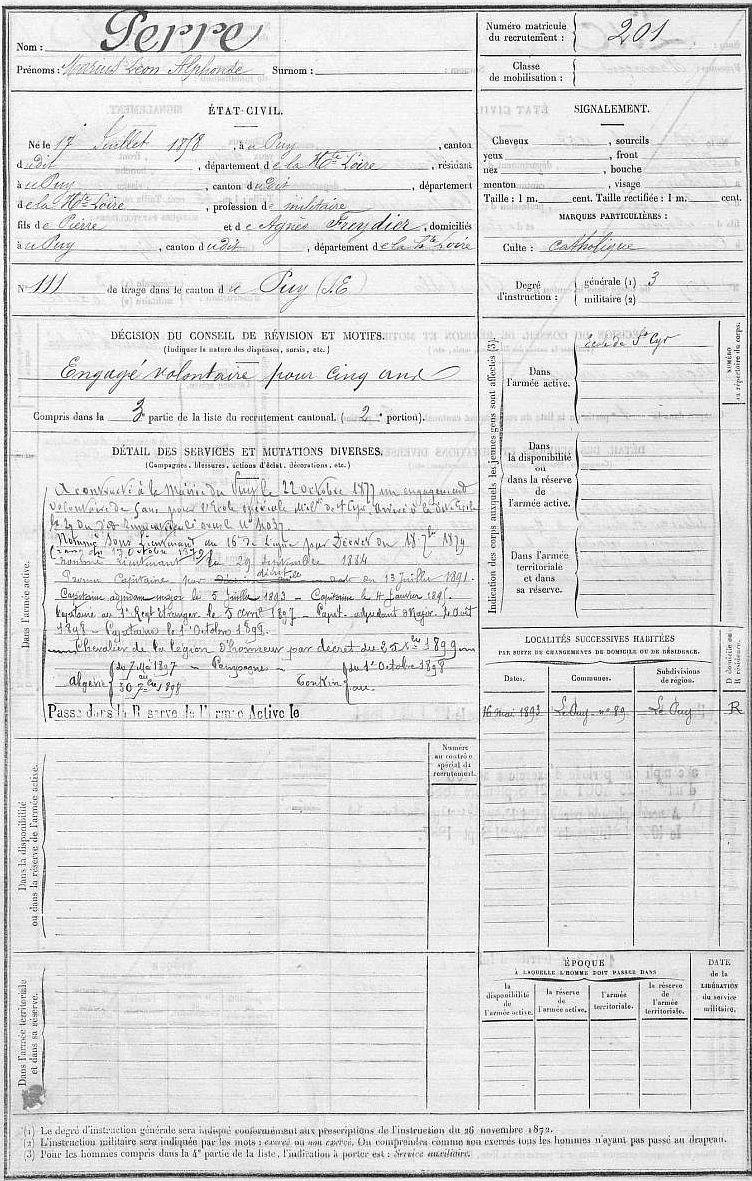 Nom : Perre
Prénoms : Marius Léon Alphonse Surnom :
ÉTAT-CIVIL.
Né le 17 Juillet 1858, à u Puy, canton
d udit, département d e la Hte Loire, résidant
à u Puy, canton d udit, département
d e la Hte Loire, profession d e militaire
fils de Pierre et d e Agnès Freydier, domiciliés
à u Puy, canton d udit, département d e la Hte Loire
N° 111 de tirage dans le canton d u Puy (S.E)
DÉCISION DU CONSEIL DE RÉVISION ET MOTIFS.
(Indiquer la nature des dispenses, sursis, etc.)
Engagé volontaire pour cinq ans
Compris dans la 3e partie de la liste du recrutement cantonal. ( 2e portion).
DÉTAIL DES SERVICES ET MUTATIONS DIVERSES.
(Campagnes, blessures, actions d'éclat, décorations, etc.)
Dans l'armée active.
A contracté à la Mairie du Puy le 22 octobre 1877 un engagement
volontaire de 5 ans pour l'école spéciale milre de St Cyr. Arrivé à la dite Ecole
le 29 du dit
Nommé Sous Lieutenant au 16e de ligne par Décret du 1879
(rang du 1er Octobre 1879)
nommé Lieutenant le 29 septembre 1884
Promu Capitaine par décret du 13 Juillet 1891.
Capitaine adjudant major le 5 Juillet 1893 - Capitaine le 4 Janvier 1891.
Capitaine au 1er Regt Etranger le 5 avril 1897 - Capit. adjudant Major 2 Août
1898 - Capitaine le 1er Octobre 1898.
Chevalier de la légion d'honneur par décret du 25 1899
Campagnes
Algérie du 7 Mai 1897 au 30 7bre 1898
Tonkin du 1er Octobre 1898 au
Passé dans la Réserve de l'armée Active le
Dans la disponibilité
ou dans la réserve de l'armée active.
Numéro
au contrôle
spécial du
recrutement.
Dans l'armée territoriale
et dans sa réserve.
Numéro matricule
du recrutement : 201
Classe
de mobilisation :
SIGNALEMENT.
Cheveux , sourcils
yeux , front
nez , bouche
menton , visage
Taille : 1 m. cent. Taille rectifiée : 1 m. cent.
MARQUES PARTICULIÈRES :
Culte : Catholique
Degré
d'instruction :
générale (1) 3
militaire (2)
Indication des corps auxquels les jeunes gens sont affectés (3).
Dans
l'armée active.
école de St Cyr
NUMÉRO
au répertoire du corps.
Dans
la disponibilité
ou
dans la réserve
de
l'armée active.
Dans l'armée
territoriale
et dans
sa réserve.
LOCALITÉS SUCCESSIVES HABITÉES
PAR SUITE DE CHANGEMENTS DE DOMICILE OU DE RÉSIDENCE.
D domicile ou
R résidence.
Dates. Communes. Subdivisions
de région.
16 mai 1893 Le Puy - n° 89 Le Puy R
ÉPOQUE
A LAQUELLE L'HOMME DOIT PASSER DANS
la
disponibilité
de
l'armée active.
la réserve
de
l'armée active.
l'armée
territoriale.
la réserve
de l'armée
territoriale.
DATE
de la
LIBÉRATION
du service
militaire.
(1) Le degré d'instruction générale sera indiqué conformément aux prescriptions de l'instruction du 26 novembre 1872.
(2) L'instruction militaire sera indiquée par les mots : exercé ou non exercé. On comprendra comme non exercés tous les hommes n'ayant pas passé au drapeau.
(3) Pour les hommes compris dans la 4e partie de la liste, l'indication à porter est : Service auxiliaire.